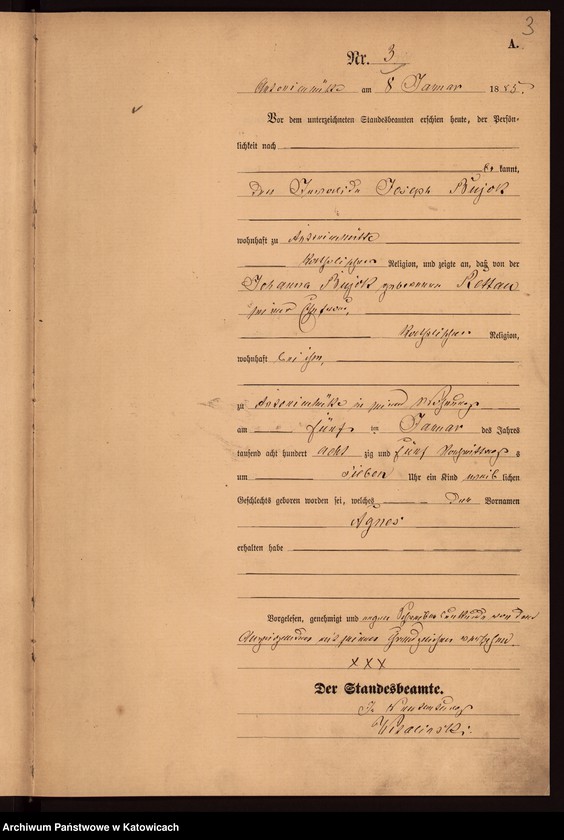 3
A.
Nr. 3
Antonienhütte am 8 Januar 1885.
Vor dem unterzeichneten Standesbeamten erschien heute, der Persön-
lichkeit nach
be kannt,
den Invalide Joseph Bujok
wohnhaft zu Antonienhütte
katholischer Religion, und zeigte an, daß von der
Johanna Bujok geborenen Kottau
seiner Ehefrau,
katholischer Religion,
wohnhaft bei ihm,
zu Antonienhütte in seiner Wohnung
am fünf ten Januar des Jahres
tausend acht hundert acht zig und fünf Nachmittag s
um sieben Uhr ein Kind weib lichen
Geschlechts geboren worden sei, welches den Vornamen
Agnes
erhalten habe
Vorgelesen, genehmigt und wegen Schreibens von dem
Anzeigenden mit seinem Handzeichen versehen.
XXX
Der Standesbeamte.
In Vertretung
Archiwum Państwowe w Katowicach